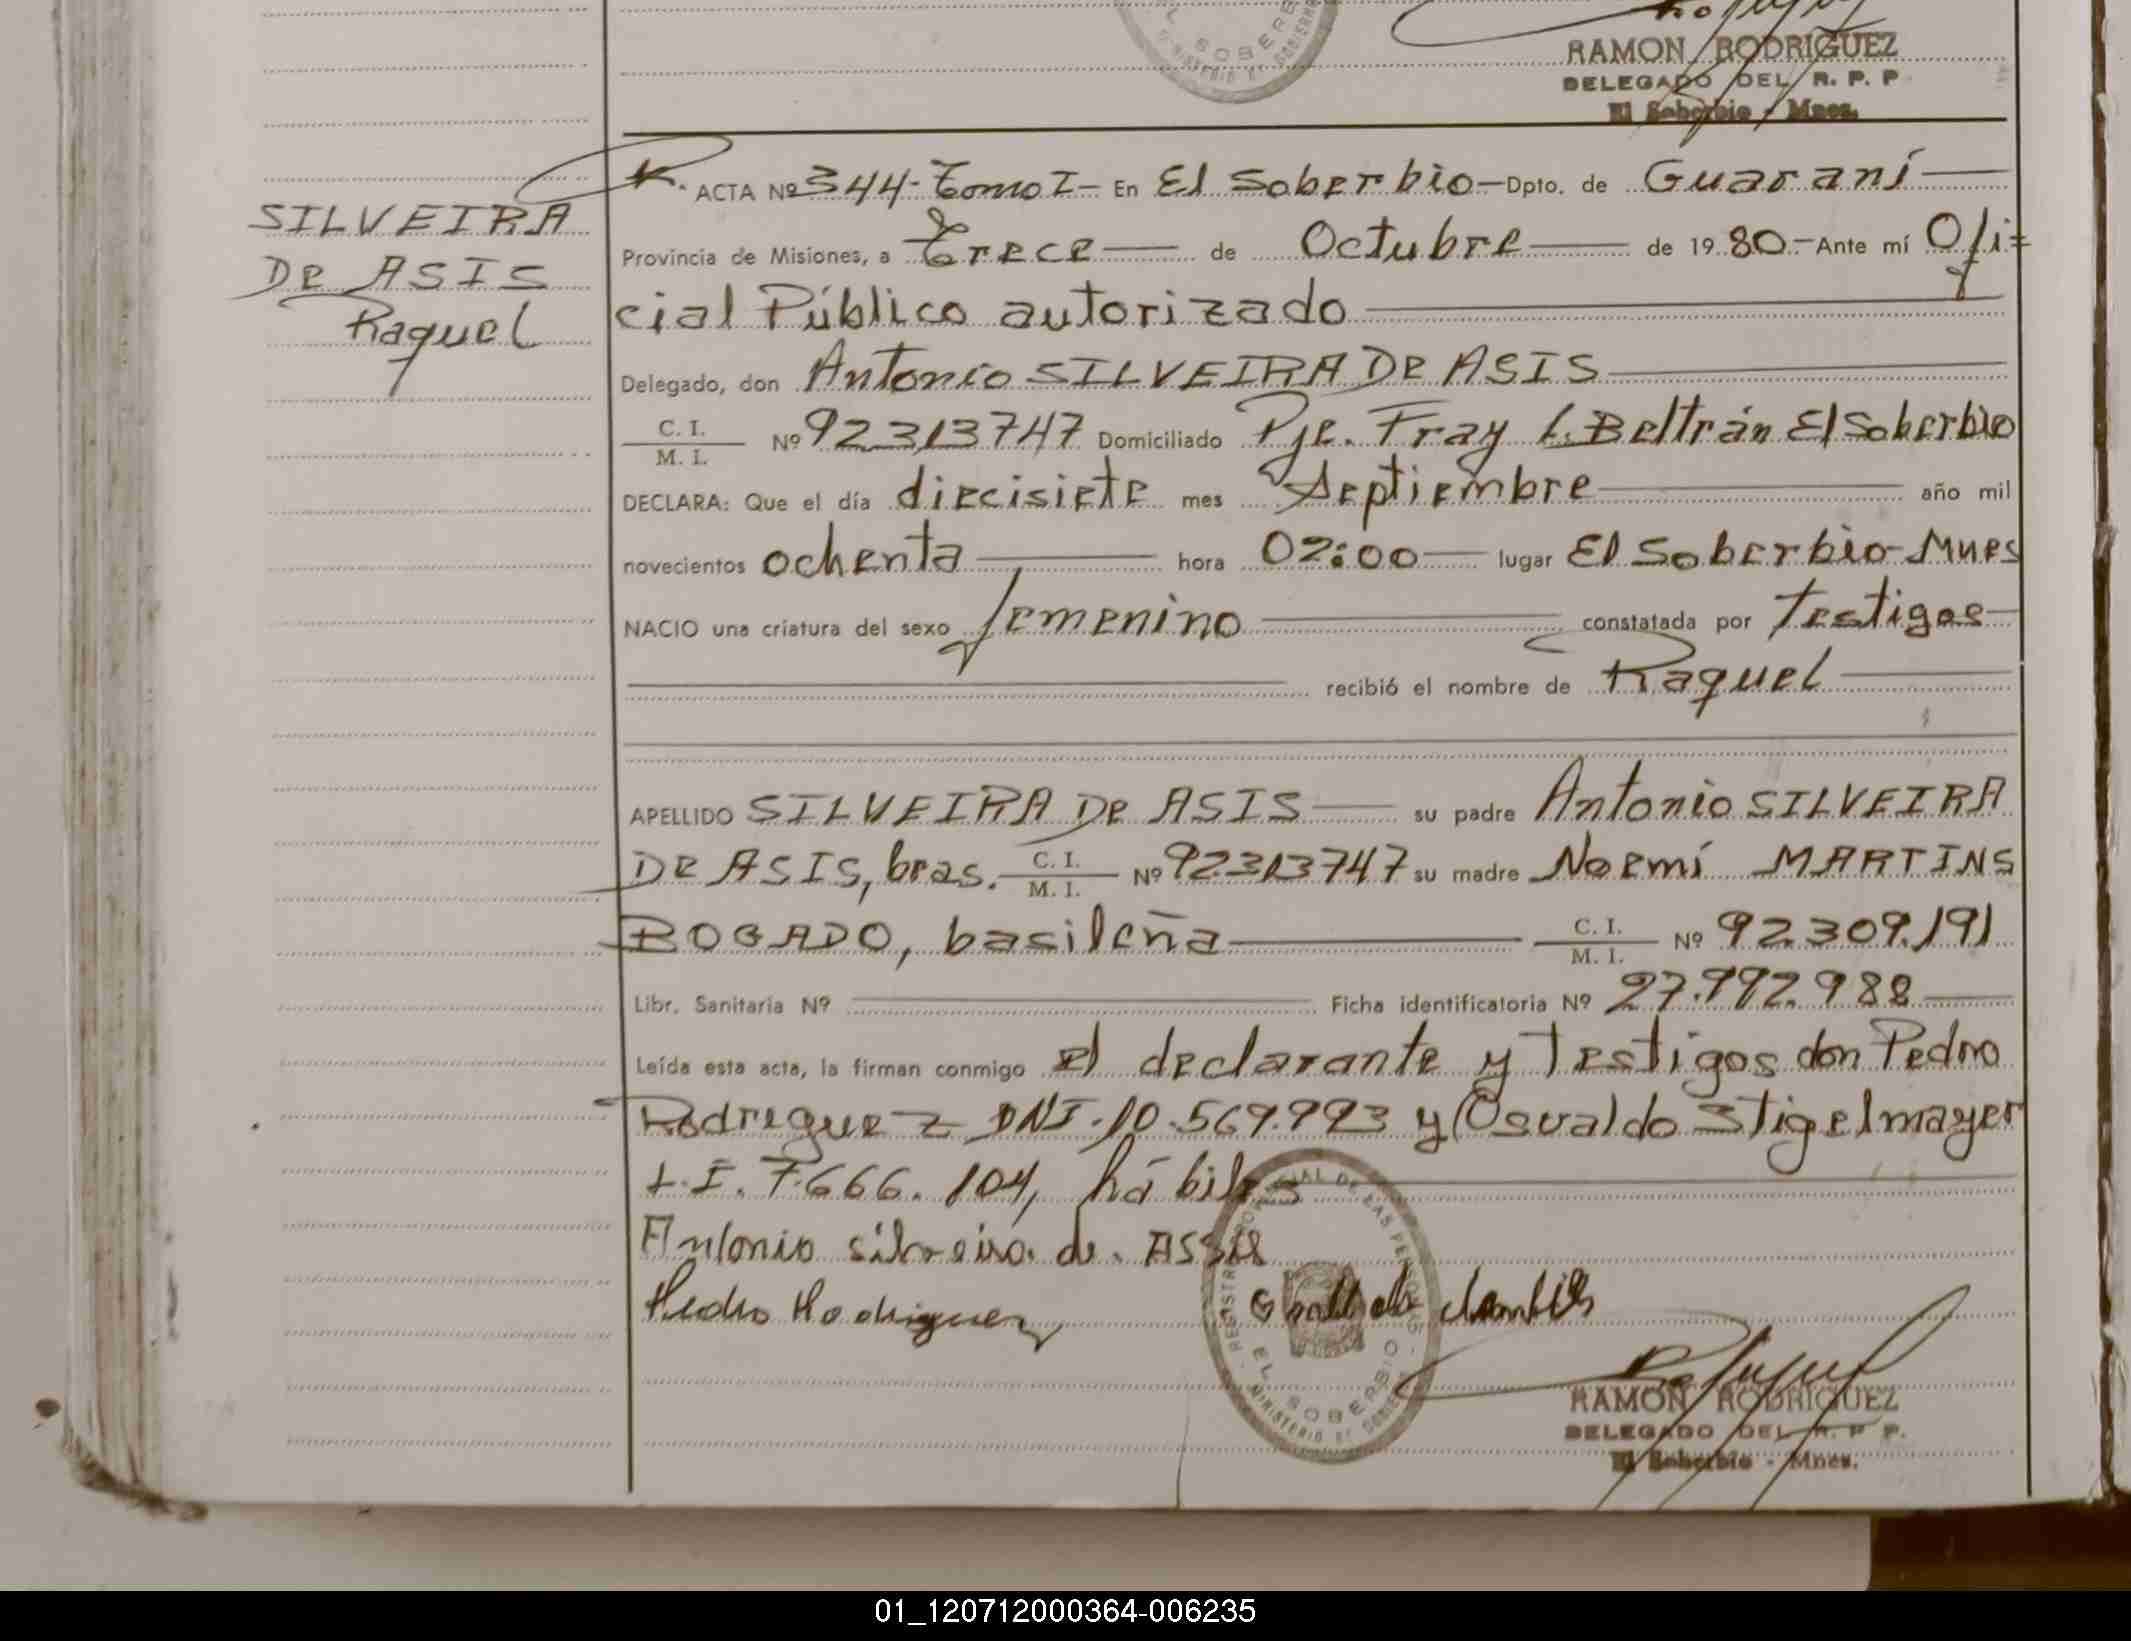 RAMON RODRIGUEZ
DELEGADO DEL R. P. P
El Soberbio - Mnes.
SILVEIRA
DE ASIS
Raquel
ACTA Nº 344- Tomo I- En El Soberbio- Dpto. de Guaraní
Provincia de Misiones, a Trece de Octubre de 19 80.- Ante mí Ofi=
cial Público autorizado
Delegado, don Antonio SILVEIRA DE ASIS
C. I.
M. I. Nº 92313747 Domiciliado Pje. Fray L. Beltrán El Soberbio
DECLARA: Que el día diecisiete mes Septiembre año mil
novecientos ochenta hora 02:00 lugar El Soberbio-Mnes
NACIO una criatura del sexo femenino constatada por Testigos
recibió el nombre de Raquel
APELLIDO SILVEIRA DE ASIS su padre Antonio SILVEIRA
DE ASIS, bras. C. I. M. I. Nº 92313747 su madre Noemí MARTINS
BOGADO, basileña C. I. M. I. Nº 92.309.191
Libr. Sanitaria Nº Ficha identificatoria Nº 27.992.988
Leída esta acta, la firman conmigo el declarante y Testigos don Pedro
Rodriguez DNI. 10.569.993 y Osvaldo Stigelmayer
L.I. 7.666.104, hábiles
Antonio silveira de Assis
Pedro Rodriguez
EL SOBERBIO
RAMON RODRIGUEZ
DELEGADO DEL R. P. P.
El Soberbio - Mnes.
01_120712000364-006235